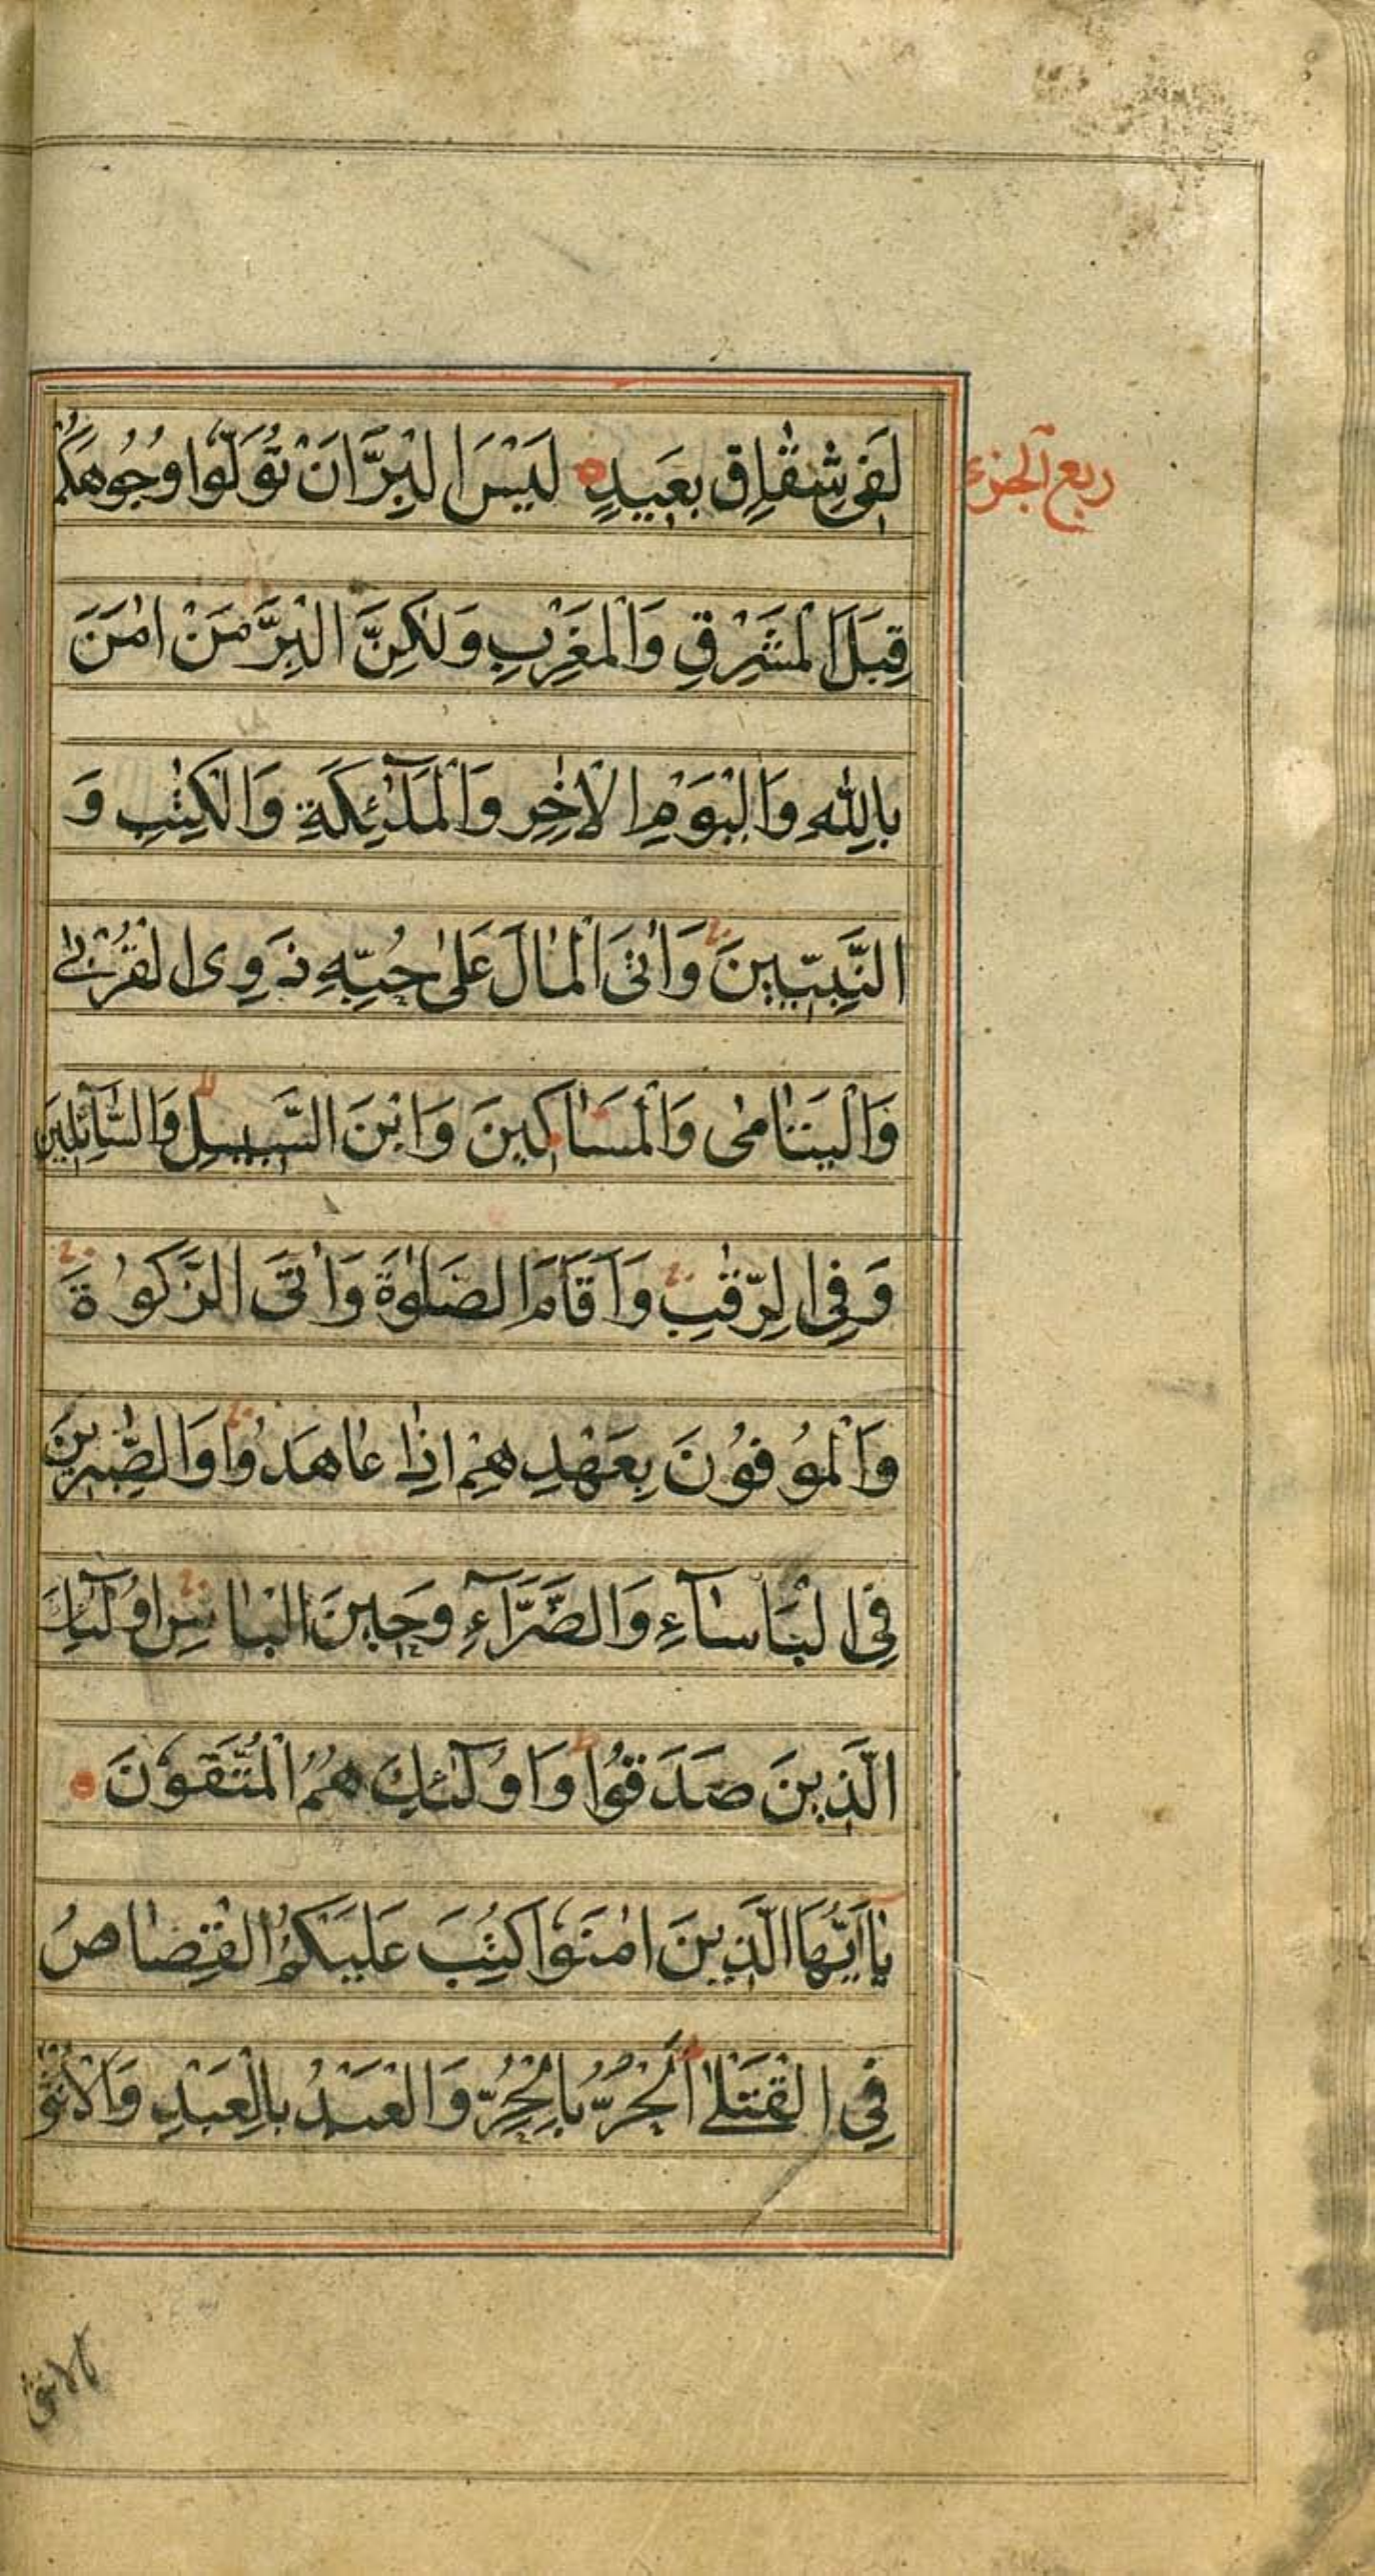 ربع الجزء
لَفِي شِقَاقٍ بَعِيدٍ لَيْسَ الْبِرَّ اَنْ تُوَلُّوا وُجُوهَكُمْ
قِبَلَ الْمَشْرِقِ وَالْمَغْرِبِ وَلٰكِنَّ الْبِرَّ مَنْ اٰمَنَ
بِاللّٰهِ وَالْيَوْمِ الْاٰخِرِ وَالْمَلٰٓئِكَةِ وَالْكِتٰبِ وَ
النَّبِيّٖينَ وَاٰتَى الْمَالَ عَلٰى حُبِّهٖ ذَوِي الْقُرْبٰى
وَالْيَتَامٰى وَالْمَسَاكِينَ وَابْنَ السَّبِيلِ وَالسَّآئِلِينَ
وَفِي الرِّقٰبِ وَاَقَامَ الصَّلٰوةَ وَاٰتَى الزَّكٰوةَ
وَالْمُوفُونَ بِعَهْدِهِمْ اِذَا عَاهَدُوا وَالصّٰبِرِينَ
فِي الْبَاْسَآءِ وَالضَّرَّآءِ وَحِينَ الْبَاْسِ اُولٰٓئِكَ
الَّذِينَ صَدَقُوا وَاُولٰٓئِكَ هُمُ الْمُتَّقُونَ
يَااَيُّهَا الَّذِينَ اٰمَنُوا كُتِبَ عَلَيْكُمُ الْقِصَاصُ
فِي الْقَتْلٰى اَلْحُرُّ بِالْحُرِّ وَالْعَبْدُ بِالْعَبْدِ وَالْاُنْثٰى
بالانثى